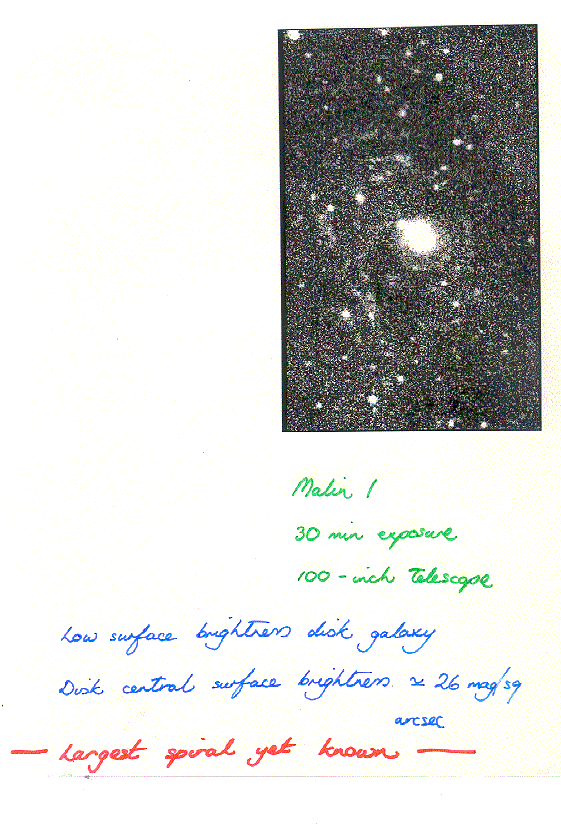 Malin 1
30 min exposure
100-inch Telescope
Low surface brightness disk galaxy
Disk central surface brightness ≃ 26 mag/sq
arcsec
— Largest spiral yet known —